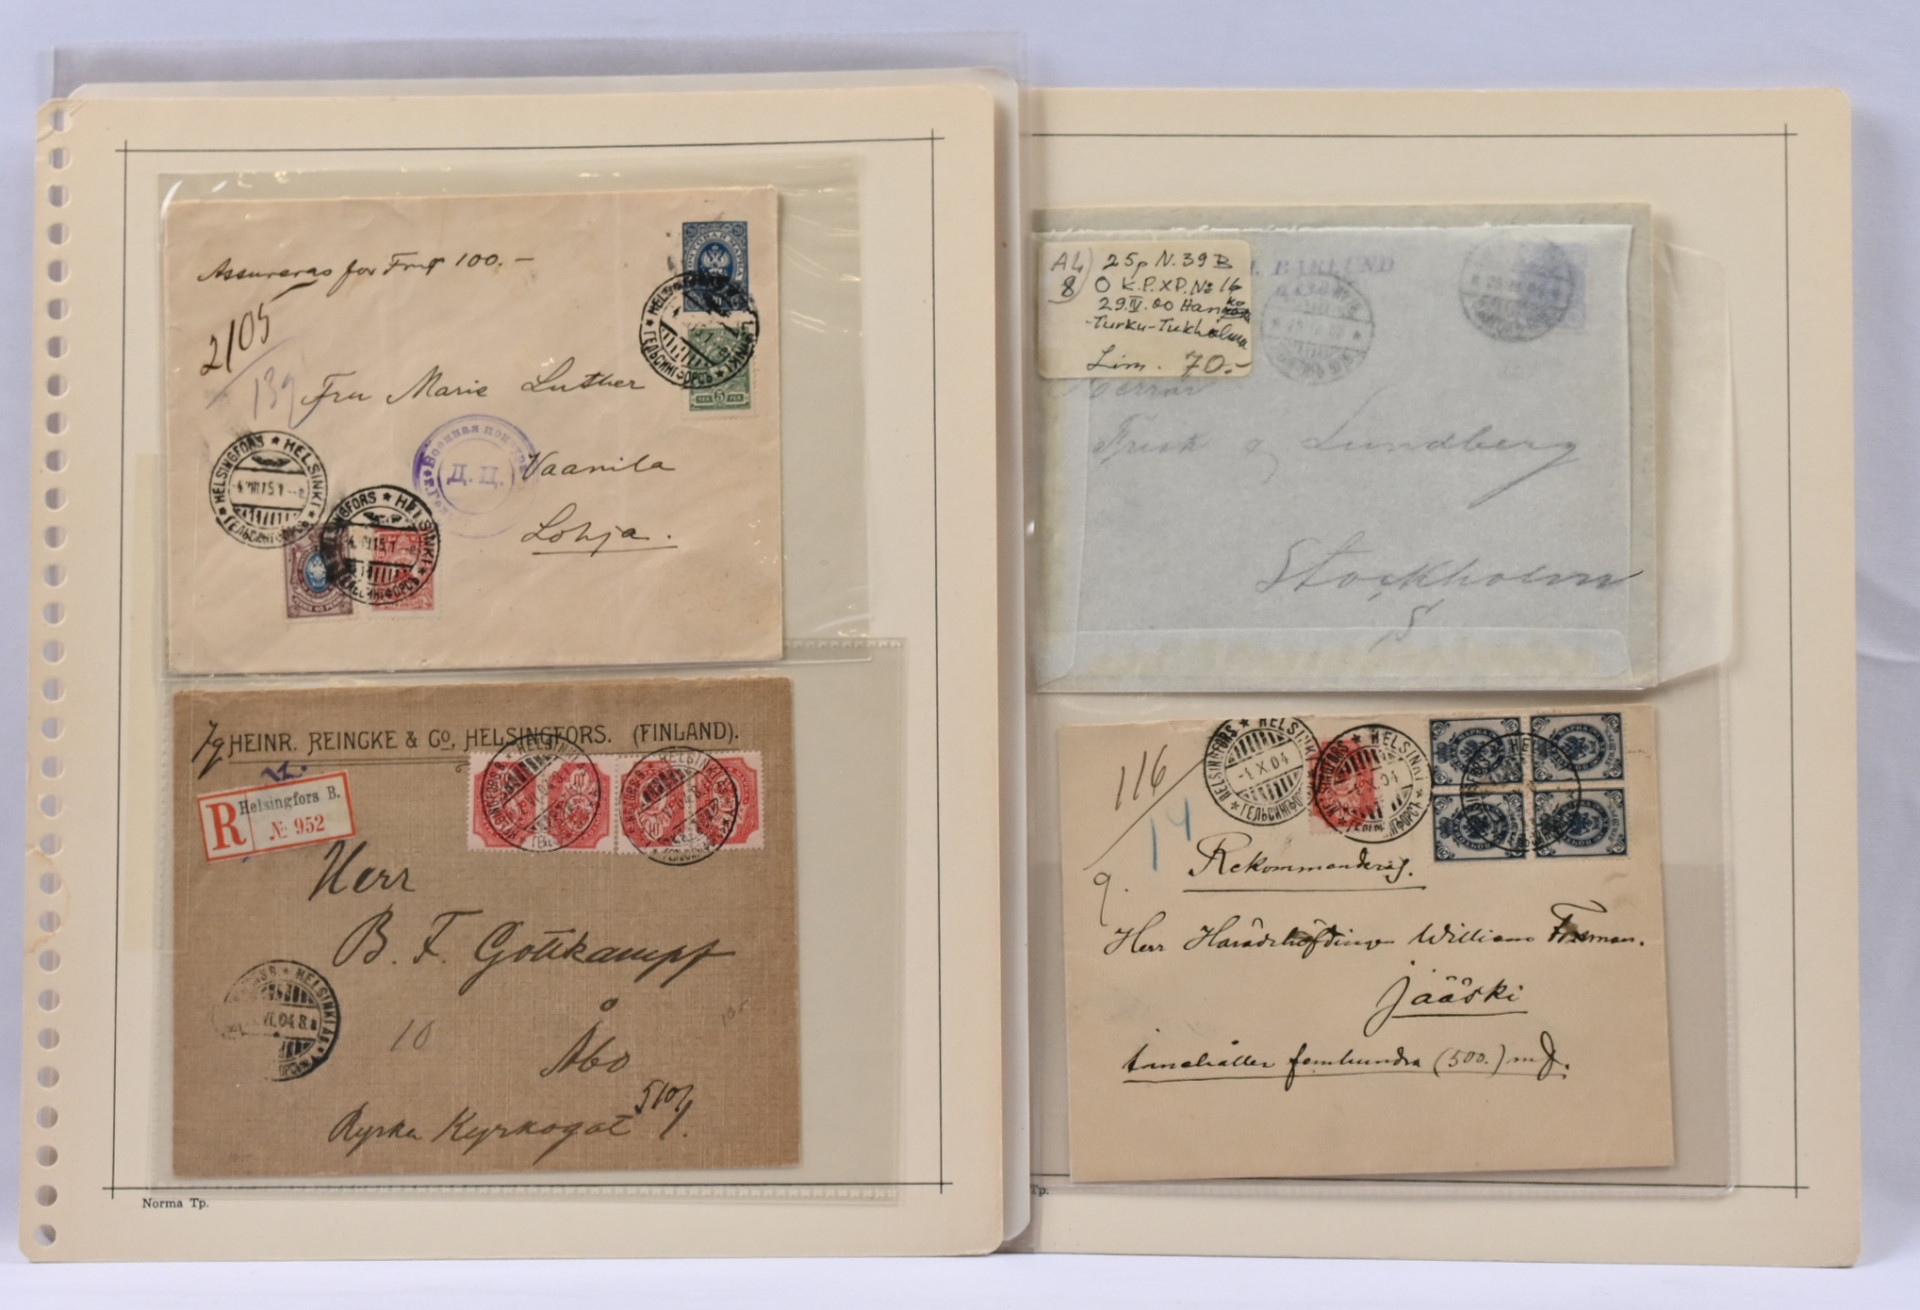 Assureras for Fmk 100.-
2105
139
Fru Marie Luther
Vaanila
Lohja.
Военная
Д.Ц.
HELSINGFORS * HELSINKI
ГЕЛЬСИНГФОРСЪ
HELSINGFORS * HELSINKI
HELSINKI
ГЕЛЬСИНГФОРСЪ
5
HEINR. REINCKE & Co, HELSINGFORS. (FINLAND).
R
Helsingfors B.
№ 952
Herr
B. F. Gottkampf
Åbo
10
Ryska Kyrkogat
VI.04.8.
Norma Tp.
A4)
8
25p N. 39 B
O K.P.XP. No 16
29.IV.00 Hanko
-Turku-Tukholma
Lim. 70.-
BÄRLUND
Herrar
Frisk & Lundberg
Stockholm
S
116
14
9.
HELSINGFORS * HELSINKI
-1.X.04
ГЕЛЬСИНГФОРСЪ
Rekommenderas.
Herr Häradshöfdingen William
Jääski
Innehåller femhundra (500.) mk.
Tp.